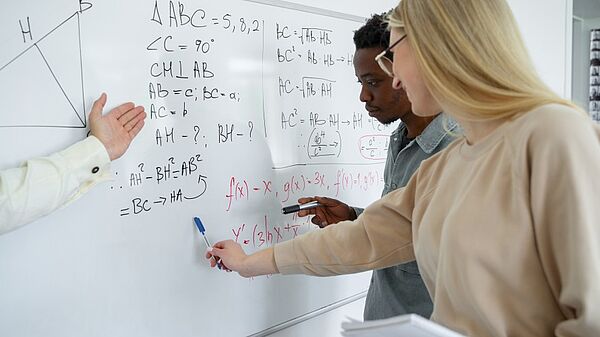 B
H
△ABC = 5, 8, 2
∠C = 90°
CM⊥AB
AB = c; BC = a;
AC = b
AH - ? ; BH - ?
∴ AH² - BH² = AB²
= BC → HA
BC = √AB·HB
BC² = AB·HB →
AC = √AB·HB
= √AB·AH
AC² = AB·AH →
f(x) = x, g(x) = 3x, f(x)